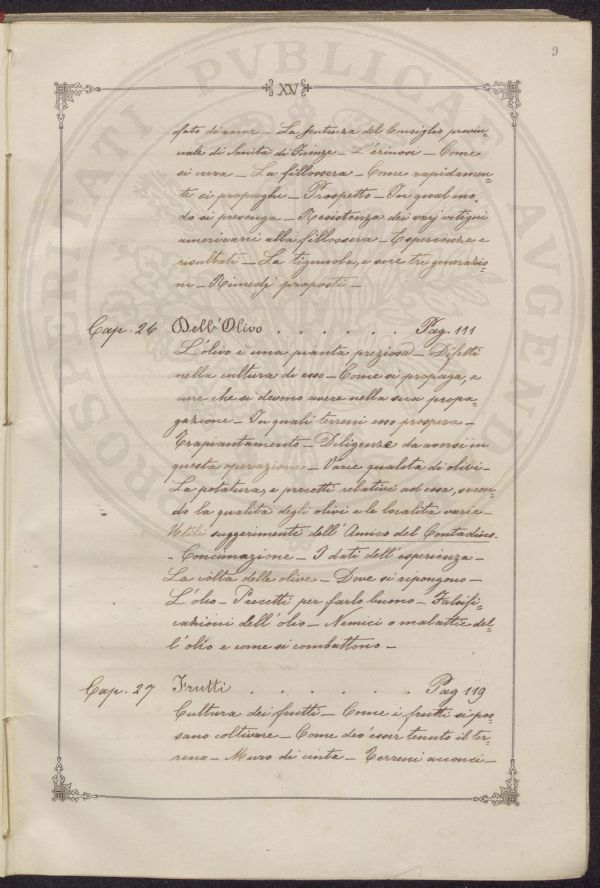 9
XV
fato di rame – La sentenza del Consiglio provin-
ciale di Sanità di Firenze – L'erinosi – Come
si cura – La fillossera – Come rapidamen-
te si propaghi – Prospetto – In qual mo-
do si prevenga – Resistenza dei varj vitigni
americani alla fillossera – Esperienze e
risultati – La tignuola, e sue tre generazio-
ni – Rimedj proposti –
Cap. 26 Dell'Olivo . . . . . . Pag. 111
L'olivo è una pianta preziosa – Difetti
nella cultura di esso – Come si propaga, e
cure che si devono avere nella sua propa-
gazione – In quali terreni esso prospera –
Trapiantamento – Diligenze da aversi in
questa operazione – Varie qualità di olivi –
La potatura, e precetti relativi ad essa, secon-
do la qualità degli olivi e le località varie –
Utili suggerimenti dell'Amico del Contadino
– Concimazione – I dati dell'esperienza –
La còlta delle olive – Dove si ripongono –
L'olio – Precetti per farlo buono – Falsifi-
cazioni dell'olio – Nemici o malattie del-
l'olio e come si combattono –
Cap. 27 Frutti . . . . . . . Pag 119
Cultura dei frutti – Come i frutti si pos-
sano coltivare – Come dev'esser tenuto il ter-
reno – Muro di cinta – Terreni acconci –
PROSPERITATI PVBLICAE AVGENDAE